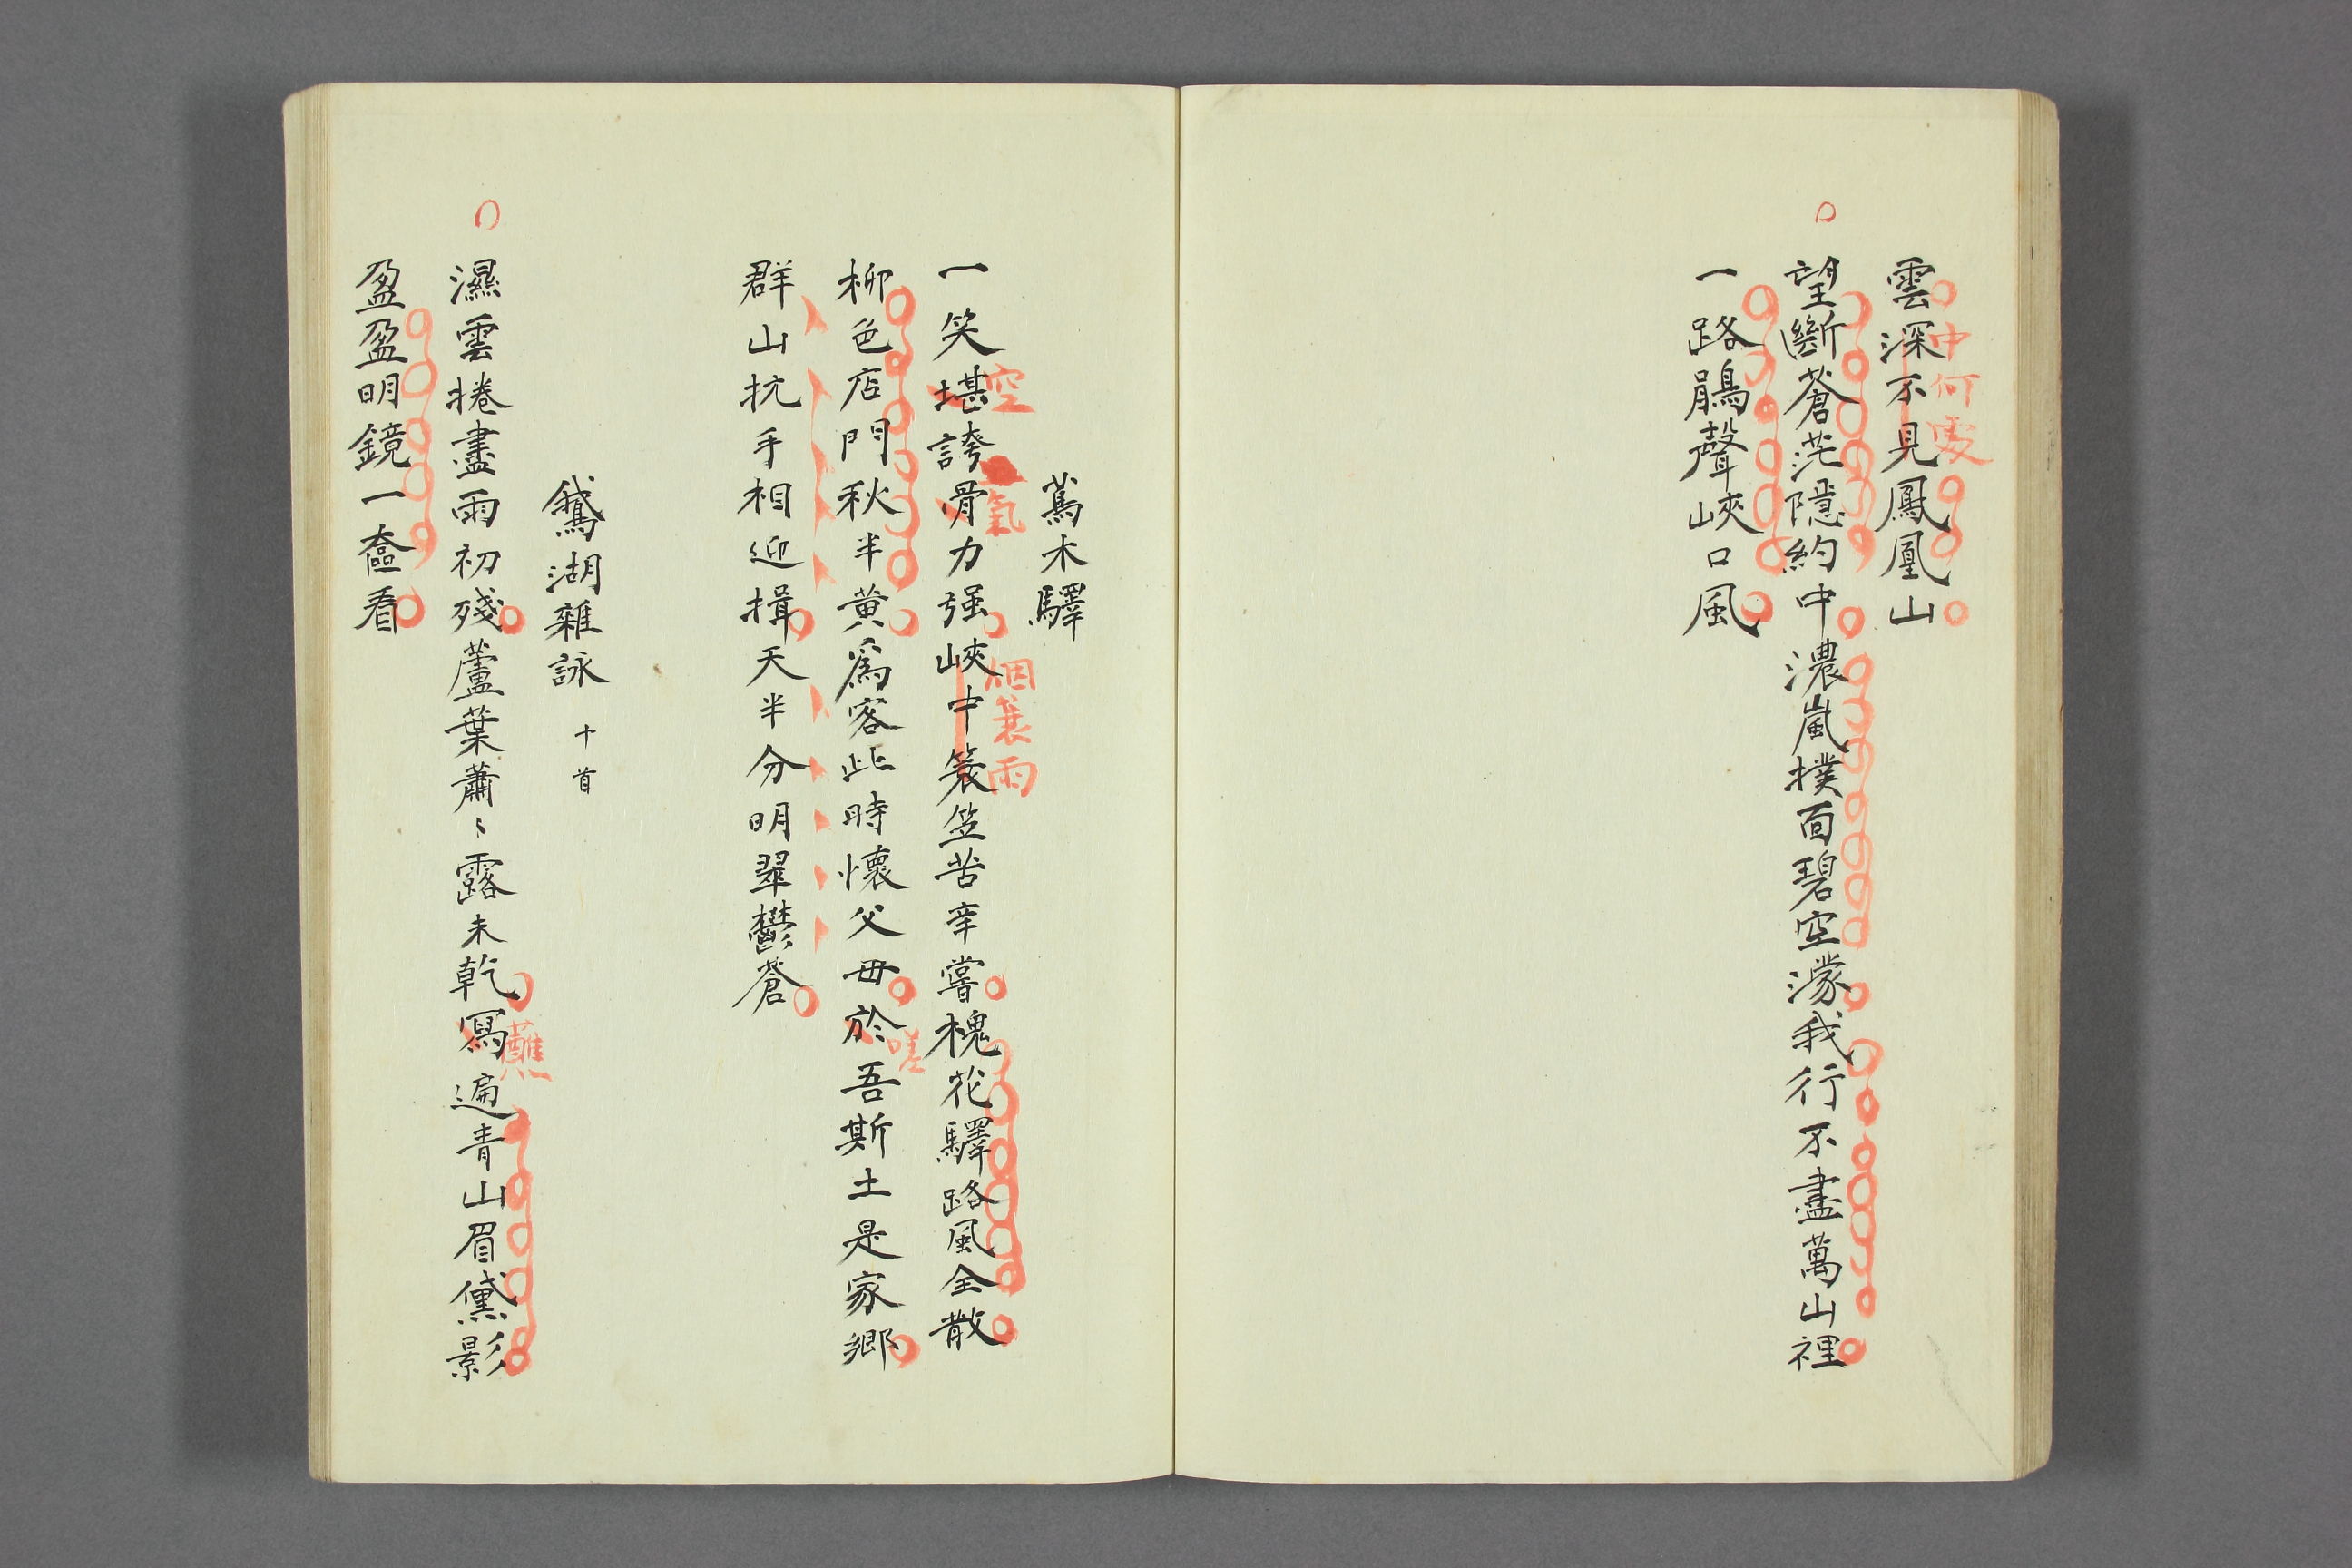 雲深不見鳳凰山
中何處
望斷蒼茫隱約中濃嵐撲面碧空濛我行不盡萬山裡
一路鵑聲峽口風
蔦木驛
一笑堪誇骨力强峽中簑笠苦辛嘗槐花驛路風全散
空 氣 烟簑雨
柳色店門秋半黄爲客此時懷父母於吾斯土是家郷
嗟
群山抗手相迎揖天半分明翠鬱蒼
鵞湖雜詠 十首
濕雲捲盡雨初殘蘆葉蕭〻露未乾寫遍青山眉黛影
蘸
盈盈明鏡一奩看